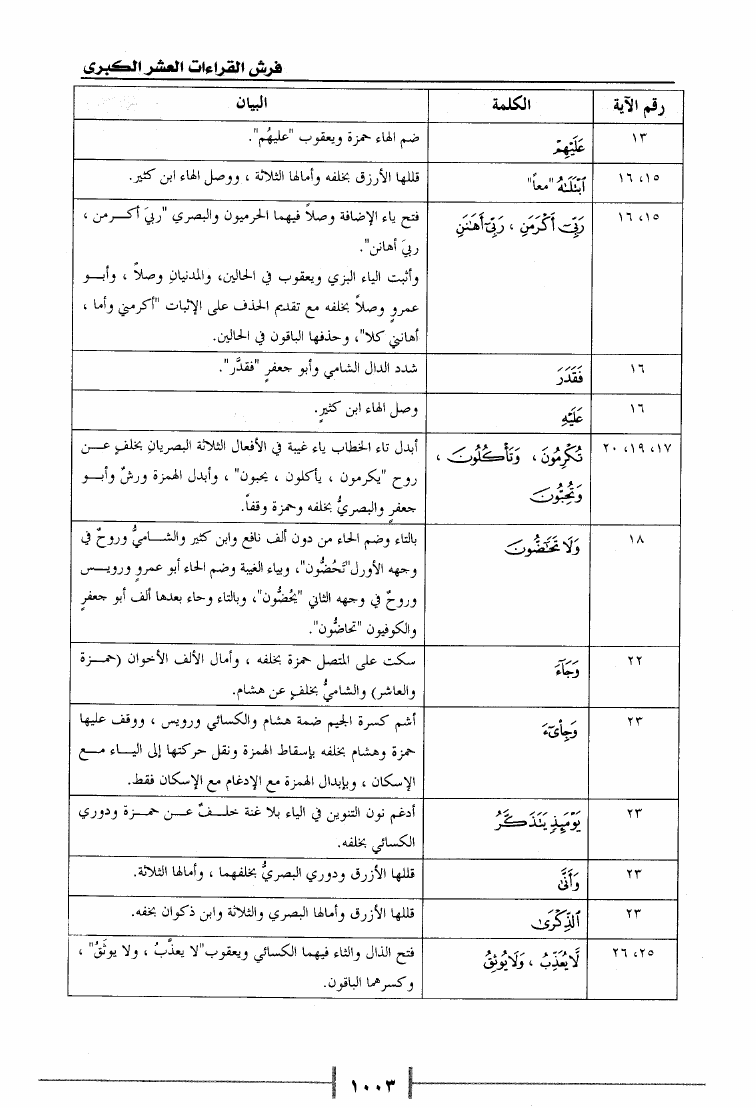 فرش القراءات العشر الكبرى
رقم الآية الكلمة البيان
١٣ عَلَيْهِمْ ضم الهاء حمزة ويعقوب "عليهُم".
١٥، ١٦ ٱبْتَلَىٰهُ "معاً" قللها الأزرق بخلفه وأمالها الثلاثة ، ووصل الهاء ابن كثير.
١٥، ١٦ رَبِّىٓ أَكْرَمَنِ ، رَبِّىٓ أَهَٰنَنِ فتح ياء الإضافة وصلاً فيهما الحرميون والبصري "ربيَ أكـرمن ،
ربيَ أهانن".
وأثبت الياء البزي ويعقوب في الحالين، والمدنيان وصلاً ، وأبـو
عمرو وصلاً بخلفه مع تقديم الحذف على الإثبات "أكرمني وأما ،
أهانني كلا"، وحذفها الباقون في الحالين.
١٦ فَقَدَرَ شدد الدال الشامي وأبو جعفرٍ "فقدَّر".
١٦ عَلَيْهِ وصل الهاء ابن كثيرٍ.
١٧، ١٩، ٢٠ تُكْرِمُونَ ، وَتَأْكُلُونَ ، أبدل تاء الخطاب ياء غيبة في الأفعال الثلاثة البصريان بخلفٍ عـن
وَتُحِبُّونَ روح "يكرمون ، يأكلون ، يحبون" ، وأبدل الهمزة ورشٌ وأبـو
جعفرٍ والبصريُّ بخلفه وحمزة وقفاً.
١٨ وَلَا تَحَٰٓضُّونَ بالتاء وضم الحاء من دون ألف نافع وابن كثير والشـاميُّ وروحٌ في
وجهه الأورل"تَحُضُّون"، وبياء الغيبة وضم الحاء أبو عمرٍو ورويـس
وروحٌ في وجهه الثاني "يَحُضُّون"، وبالتاء وحاء بعدها ألف أبو جعفرٍ
والكوفيون "تحاضُّون".
٢٢ وَجَآءَ سكت على المتصل حمزة بخلفه ، وأمال الألف الأخوان (حمـزة
والعاشر) والشاميُّ بخلفٍ عن هشام.
٢٣ وَجِا۟ىٓءَ أشم كسرة الجيم ضمة هشام والكسائي ورويس ، ووقف عليها
حمزة وهشام بخلفه بإسقاط الهمزة ونقل حركتها إلى اليـاء مـع
الإسكان ، وبإبدال الهمزة مع الإدغام مع الإسكان فقط.
٢٣ يَوْمَئِذٍ يَتَذَكَّرُ أدغم نون التنوين في الياء بلا غنة خلـفٌ عـن حمـزة ودوري
الكسائي بخلفه.
٢٣ وَأَنَّىٰ قللها الأزرق ودوري البصريُّ بخلفهما ، وأمالها الثلاثة.
٢٣ ٱلذِّكْرَىٰ قللها الأزرق وأمالها البصري والثلاثة وابن ذكوان بخفه.
٢٥، ٢٦ لَّا يُعَذِّبُ ، وَلَا يُوثِقُ فتح الذال والثاء فيهما الكسائي ويعقوب"لا يعذَّبُ ، ولا يوثَقُ" ،
وكسرهما الباقون.
١٠٠٣